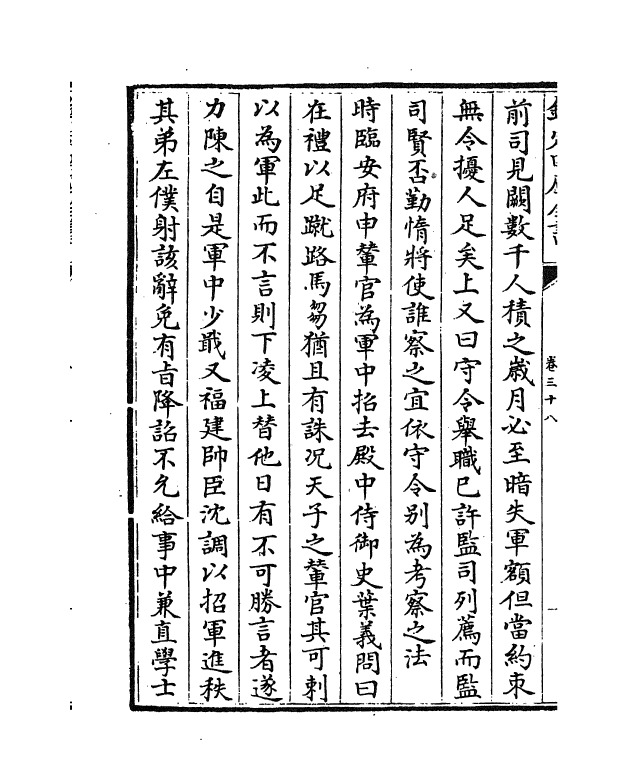 卷三十八
前司見闕數千人積之歲月必至暗失軍額但當約束
無令擾人足矣上又曰守令舉職已許監司列薦而監
司賢否勤惰將使誰察之宜依守令别為考察之法
時臨安府申輦官為軍中招去殿中侍御史葉義問曰
在禮以足蹴路馬芻猶且有誅况天子之輦官其可刺
以為軍此而不言則下凌上替他日有不可勝言者遂
力陳之自是軍中少戢又福建帥臣沈調以招軍進秩
其弟左僕射該辭免有旨降詔不允給事中兼直學士